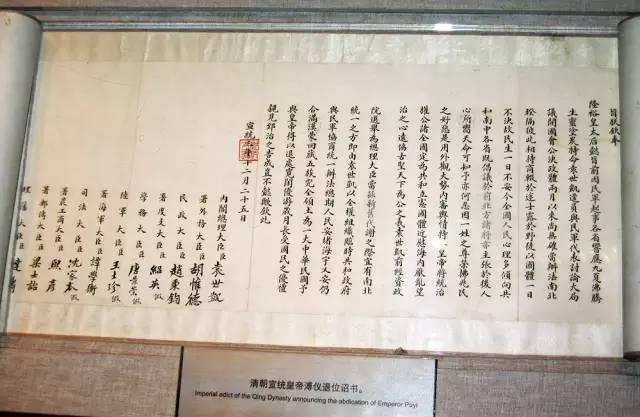 旨朕欽奉
隆裕皇太后懿旨前因民軍起事各省響應九夏沸騰
生靈塗炭特命袁世凱遣員與民軍代表討論大局
議開國會公決政體兩月以來尚無確當辦法南北
暌隔彼此相持商輟於途士露於野徒以國體一日
不決故民生一日不安今全國人民心理多傾向共
和南中各省既倡議於前北方諸將亦主張於後人
心所嚮天命可知予亦何忍因一姓之尊榮拂兆民
之好惡是用外觀大勢內審輿情特率皇帝將統治
權公諸全國定為共和立憲國體近慰海內厭亂望
治之心遠協古聖天下為公之義袁世凱前經資政
院選舉為總理大臣當茲新舊代謝之際宜有南北
統一之方即由袁世凱以全權組織臨時共和政府
與民軍協商統一辦法總期人民安堵海宇乂安仍
合滿漢蒙回藏五族完全領土為一大中華民國予
與皇帝得以退處寬閒優游歲月長受國民之優禮
親見郅治之告成豈不懿歟欽此
宣統三年十二月二十五日
內閣總理大臣袁世凱
署外務大臣胡惟德
民政大臣趙秉鈞
署度支大臣紹英假
學務大臣唐景崇假
陸軍大臣王士珍假
署海軍大臣譚學衡
司法大臣沈家本假
署農工商大臣熙彥
署郵傳大臣梁士詒
理藩大臣達壽
清朝宣统皇帝溥仪退位诏书。
Imperial edict of the Qing Dynasty announcing the abdication of Emperor Puyi